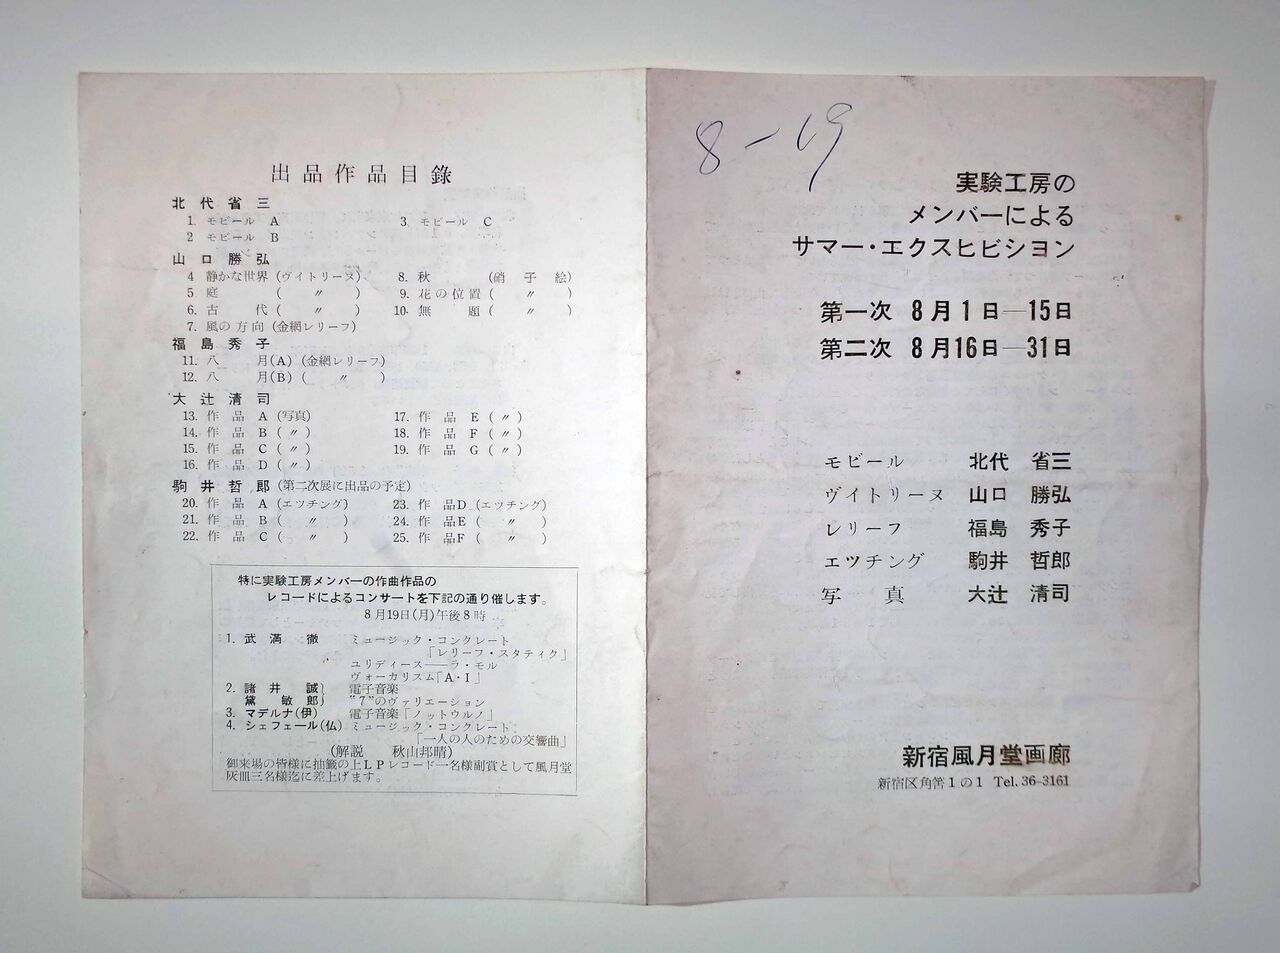 出品作品目錄
北代省三
1. モビール A
2 モビール B
3. モビール C
山口勝弘
4 静かな世界 (ヴイトリーヌ)
5 庭 ( 〃 )
6. 古代 ( 〃 )
7. 風の方向 (金網レリーフ)
8. 秋 (硝子絵)
9. 花の位置 ( 〃 )
10. 無題 ( 〃 )
福島秀子
11. 八月(A) (金網レリーフ)
12. 八月(B) ( 〃 )
大辻清司
13. 作品 A (写真)
14. 作品 B ( 〃 )
15. 作品 C ( 〃 )
16. 作品 D ( 〃 )
17. 作品 E ( 〃 )
18. 作品 F ( 〃 )
19. 作品 G ( 〃 )
駒井哲郎 (第二次展に出品の予定)
20. 作品 A (エツチング)
21. 作品 B ( 〃 )
22. 作品 C ( 〃 )
23. 作品D (エツチング)
24. 作品E ( 〃 )
25. 作品F ( 〃 )
特に実験工房メンバーの作曲作品の
レコードによるコンサートを下記の通り催します。
8月19日(月)午後8時
1. 武満徹 ミュージック・コンクレート
「レリーフ・スタティク」
ユリディース——ラ・モル
ヴォーカリスム「A・I」
2. 諸井誠) 電子音楽
黛敏郎) "7"のヴァリエーション
3. マデルナ(伊) 電子音楽「ノットウルノ」
4. シェフェール(仏) ミュージック・コンクレート
「一人の人のための交響曲」
(解説 秋山邦晴)
御来場の皆様に抽籤の上LPレコード一名様副賞として風月堂
灰皿三名様迄に差上げます。
8-19
実験工房の
メンバーによる
サマー・エクスヒビション
第一次 8月1日—15日
第二次 8月16日—31日
モビール 北代省三
ヴイトリーヌ 山口勝弘
レリーフ 福島秀子
エツチング 駒井哲郎
写真 大辻清司
新宿風月堂画廊
新宿区角筈1の1 Tel. 36-3161